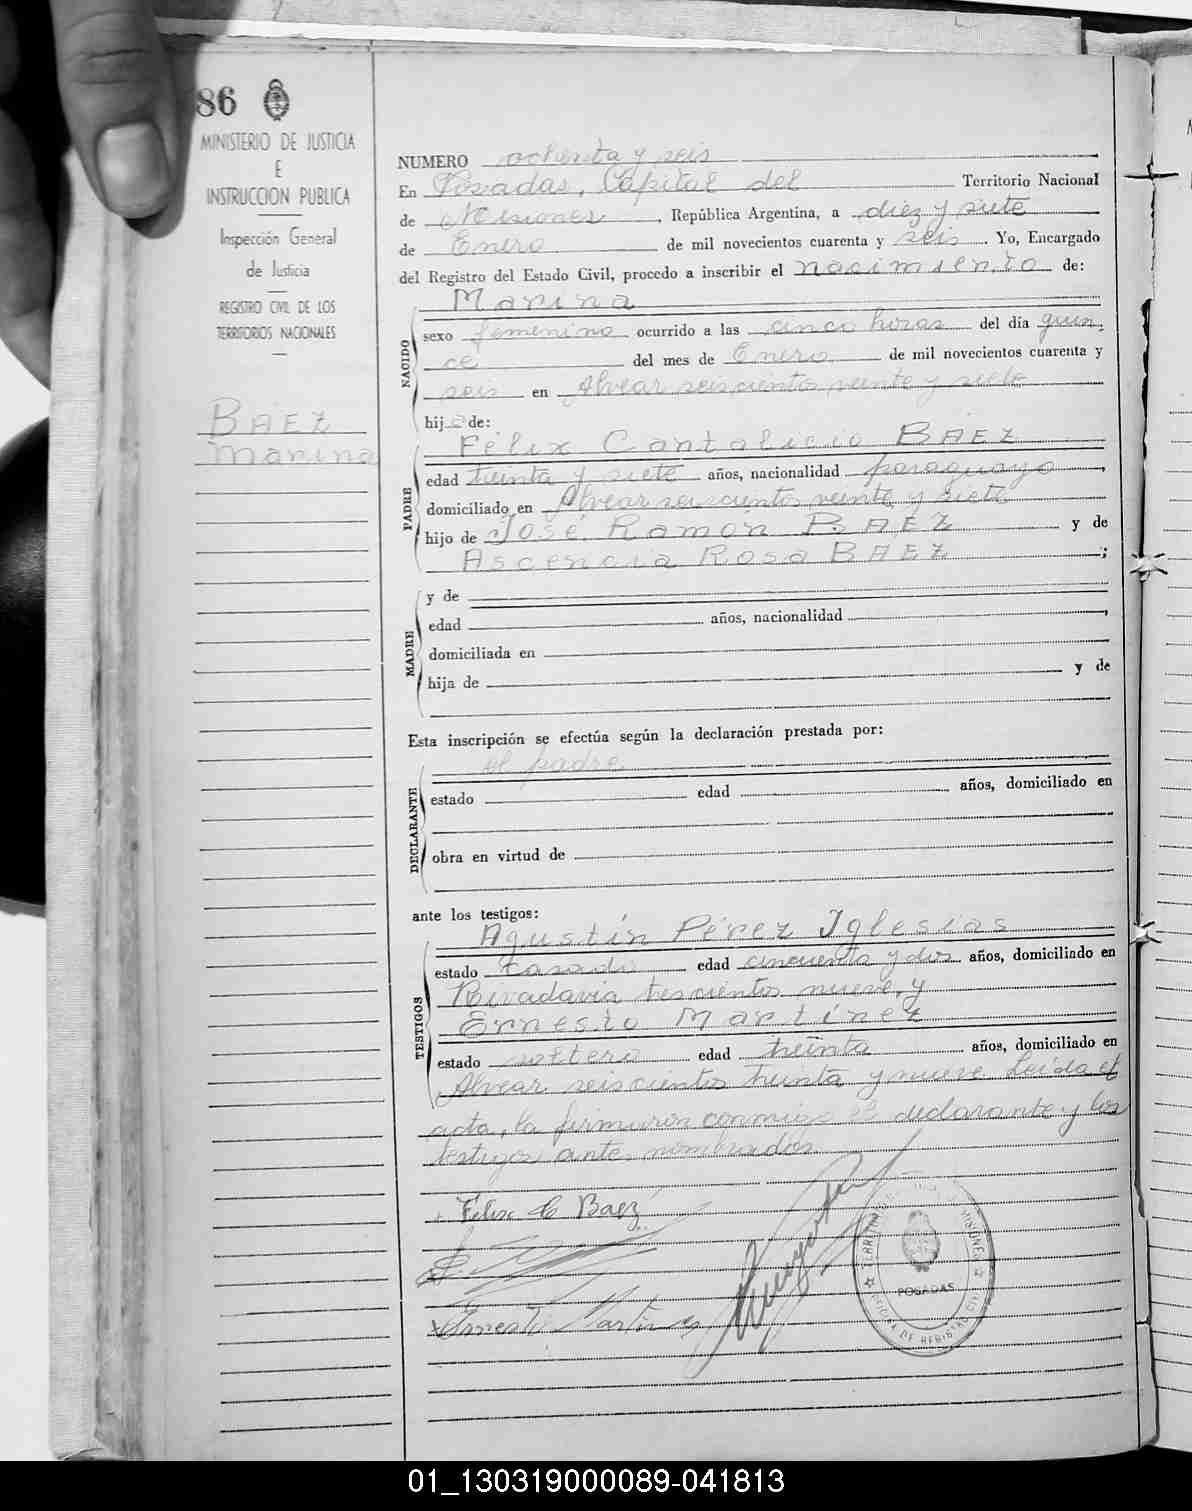 86
MINISTERIO DE JUSTICIA
E
INSTRUCCION PUBLICA
Inspección General
de Justicia
REGISTRO CIVIL DE LOS
TERRITORIOS NACIONALES
BAEZ
Marina
NUMERO ochenta y seis
En Posadas, Capital del Territorio Nacional
de Misiones, República Argentina, a diez y siete
de Enero de mil novecientos cuarenta y seis. Yo, Encargado
del Registro del Estado Civil, procedo a inscribir el nacimiento de:
NACIDO
Marina
sexo femenino ocurrido a las cinco horas del día quin-
ce del mes de Enero de mil novecientos cuarenta y
seis en Alvear seiscientos veinte y siete
hija de:
PADRE
Félix Cantalicio BAEZ
edad treinta y siete años, nacionalidad paraguayo,
domiciliado en Alvear seiscientos veinte y siete
hijo de José Ramón BAEZ y de
Ascencia Rosa BAEZ;
MADRE
y de
edad años, nacionalidad
domiciliada en
hija de y de
Esta inscripción se efectúa según la declaración prestada por:
DECLARANTE
el padre
estado edad años, domiciliado en
obra en virtud de
ante los testigos:
TESTIGOS
Agustín Pérez Iglesias
estado casado edad cincuenta y dos años, domiciliado en
Rivadavia trescientos nueve, y
Ernesto Martínez
estado soltero edad treinta años, domiciliado en
Alvear seiscientos treinta y nueve. Leída el
acta, la firmaron conmigo el declarante y los
testigos antes nombrados.
Félix C Baez
Ernesto Martinez
POSADAS
01_130319000089-041813